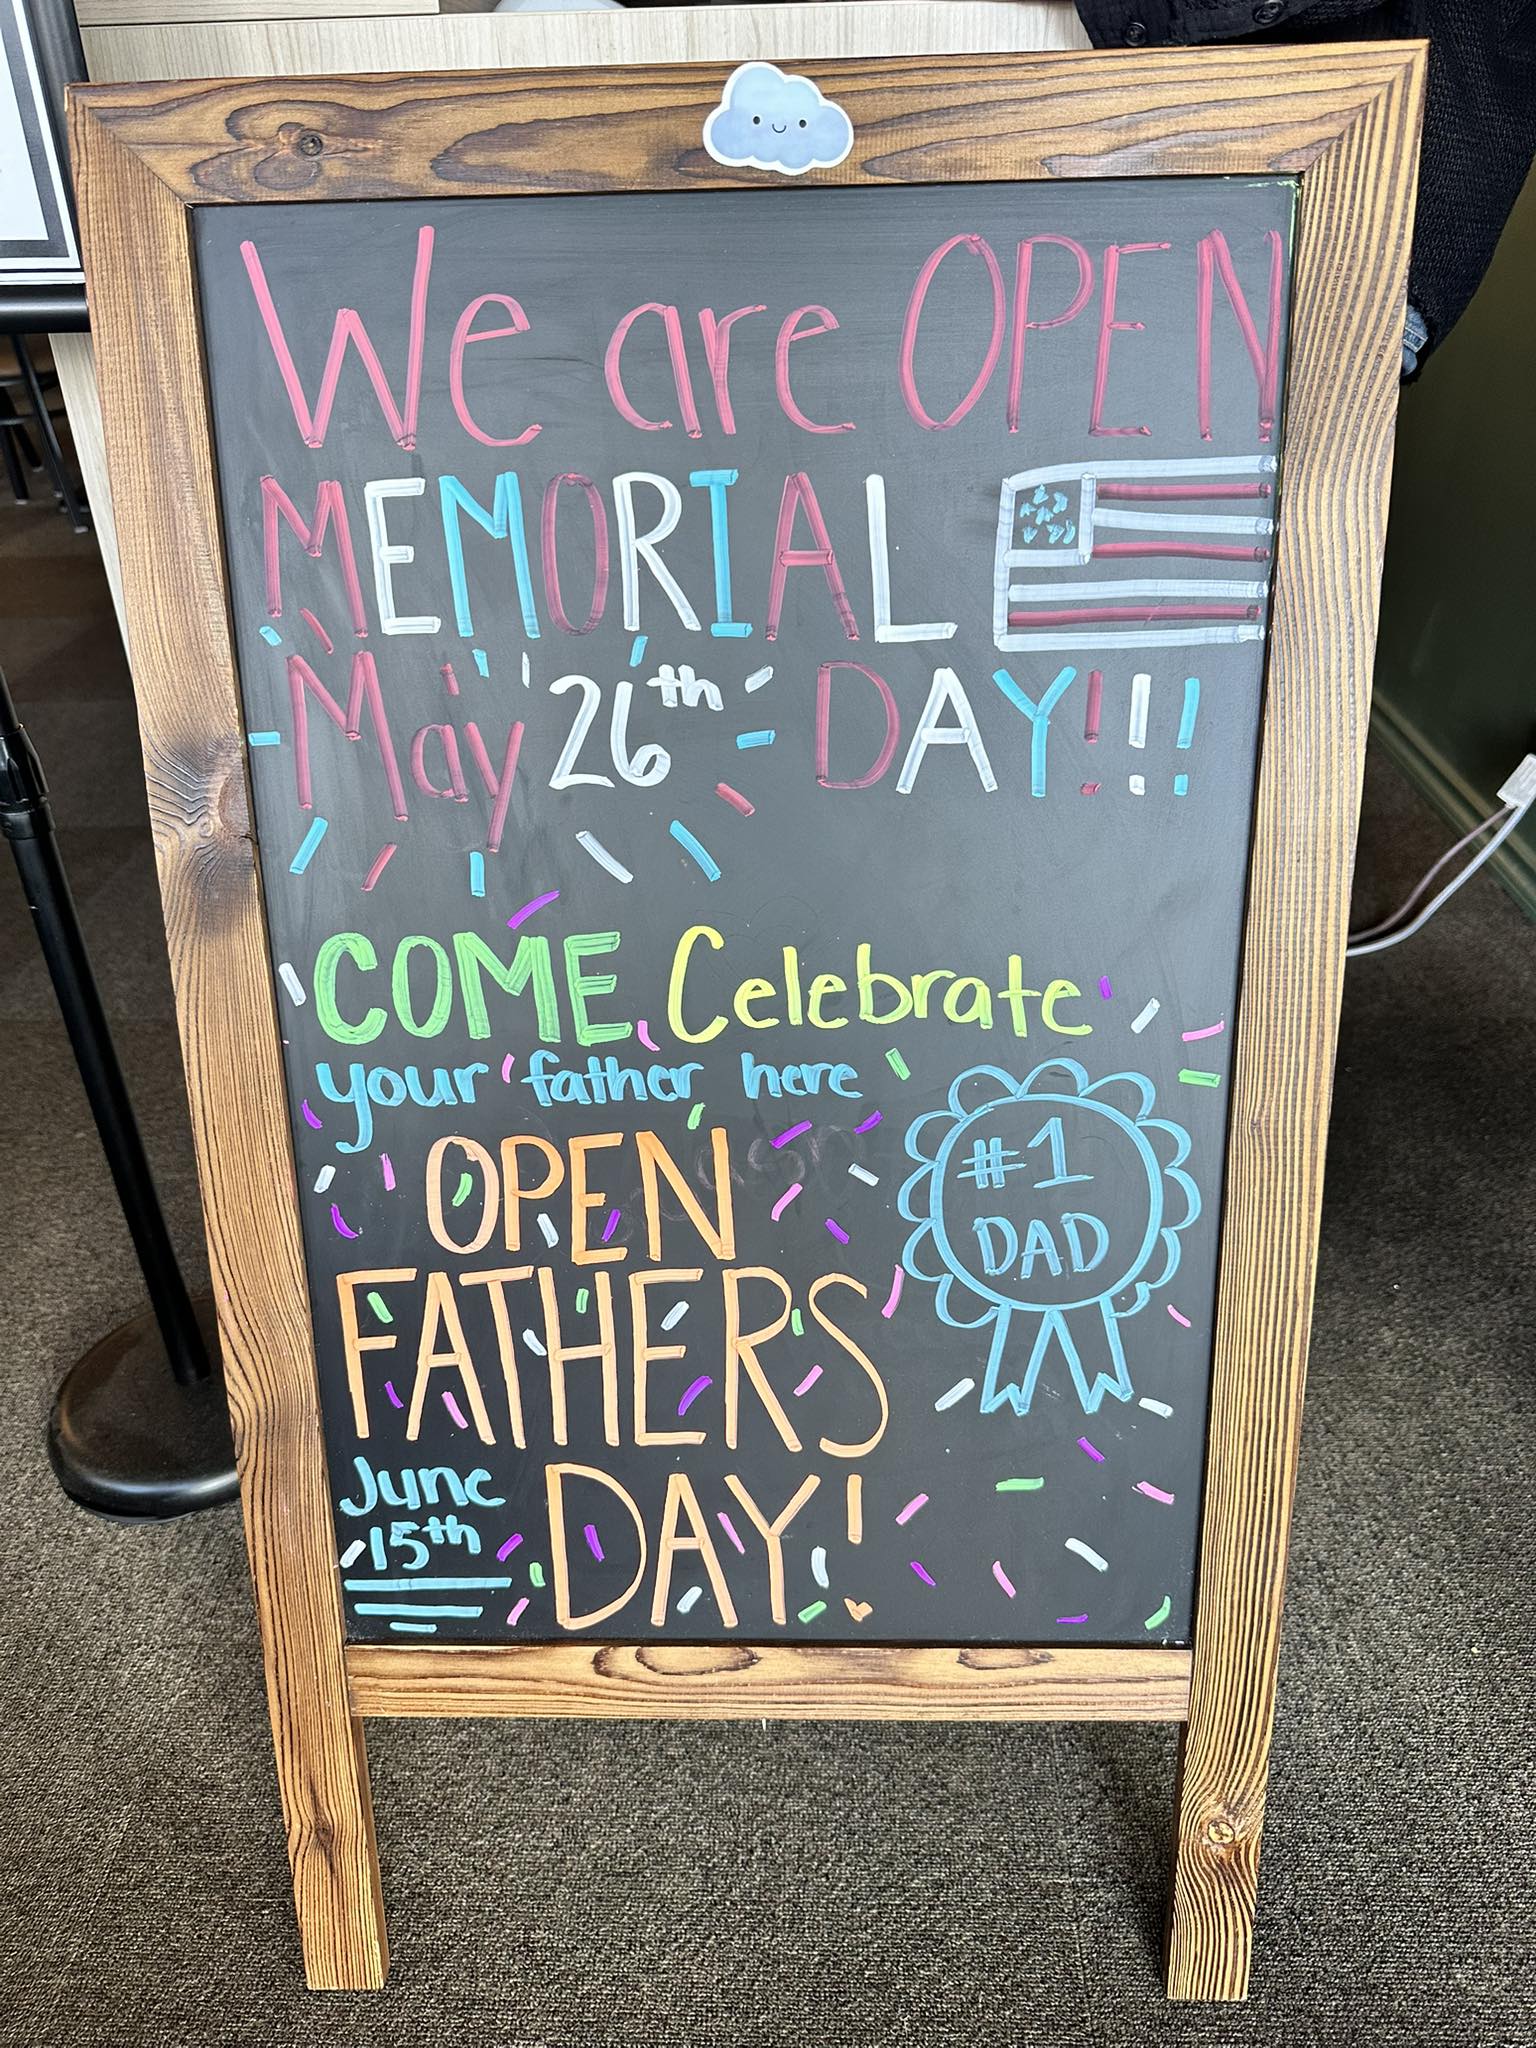 We are OPEN
MEMORIAL
May 26th DAY!!!
COME Celebrate
your father here
OPEN
#1
DAD
FATHERS
June
15th
DAY!